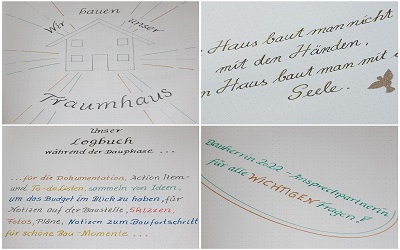 Wir bauen unser
Traumhaus
. Haus baut man nicht
mit den Händen,
n Haus baut man mit d
Seele.
Unser
Logbuch
während der Bauphase ...
...für die Dokumentation, Action Item-
und To-do-Listen, sammeln von Ideen,
um das Budget im Blick zu haben, für
Notizen auf der Baustelle, Skizzen,
Fotos, Pläne, Notizen zum Baufortschritt
für schöne Bau-Momente ...
Bauherrin 2022 - Ansprechpartnerin
für alle WICHTIGEN Fragen!